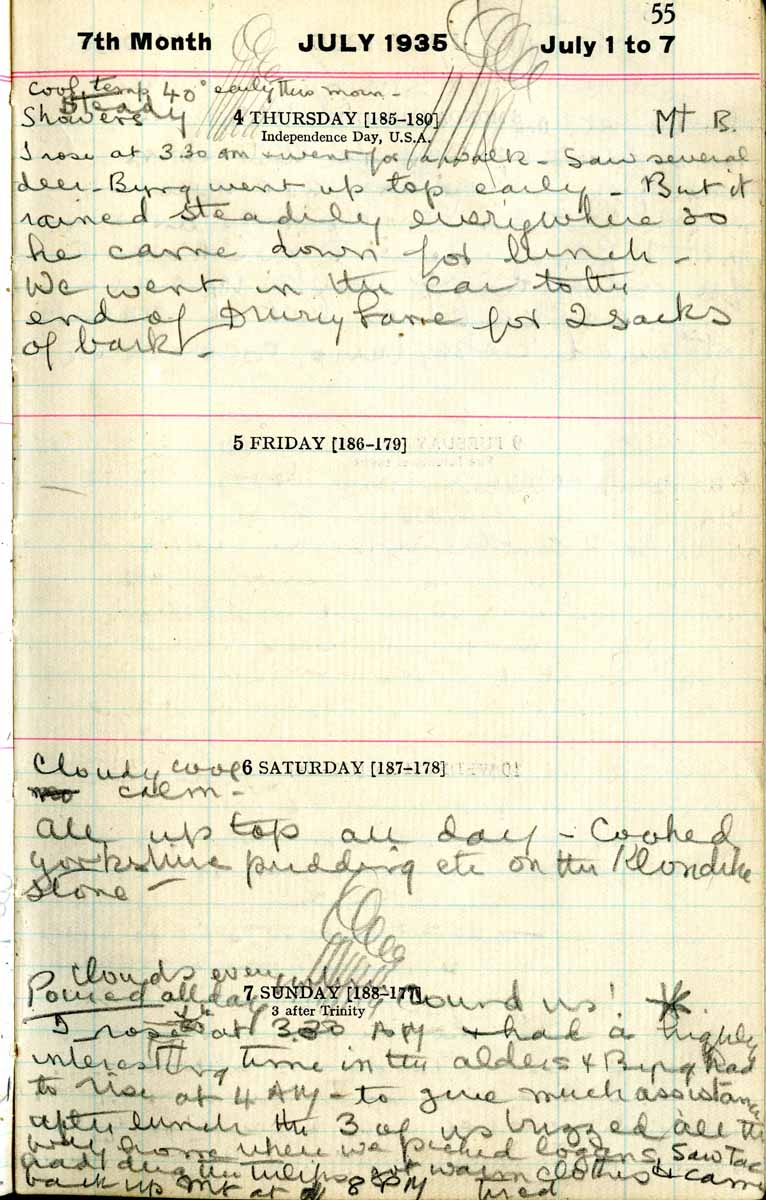 55
7th Month JULY 1935 July 1 to 7
Cool, temp 40° early this morn -
Steady
Showers
4 THURSDAY [185-180]
Mt B.
Independence Day, U.S.A.
I rose at 3.30 am & went for a walk - Saw several
deer - Byng went up top early - But it
rained steadily everywhere so
he came down for lunch -
We went in the car to the
end of Drury Lane for 2 sacks
of bark -
5 FRIDAY [186-179]
Cloudy cool
6 SATURDAY [187-178]
calm -
All up top all day - Cooked
yorkshire pudding etc on the Klondike
stone -
Clouds
Poured all day
7 SUNDAY [188-177]
round us!
3 after Trinity
I rose at 3.30 AM & had a highly
interesting time in the alders & Byng had
to rise at 4 AM - to give much assistance
after lunch the 3 of us buzzed all the
way home where we picked logans, Saw Tac
had dug the tulips, got warm clothes & came
back up Mt at 8 PM tired